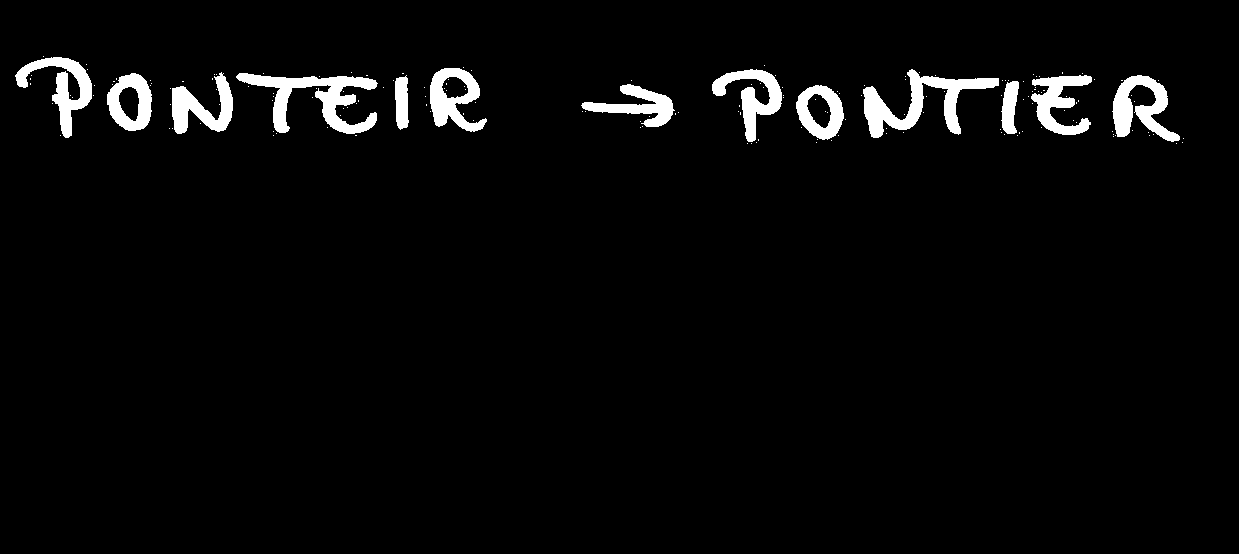 PONTEIR → PONTIER